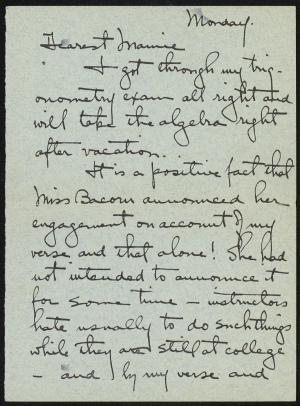 Monday.
Dearest Mamie
I got through my trig-
onometry exam all right and
will take the algebra right
after vacation.
It is a positive fact that
Miss Bacorn announced her
engagement on account of my
verse and that alone! She had
not intended to announce it
for some time – instructors
hate usually to do such things
while they are still at college
– and by my verse and